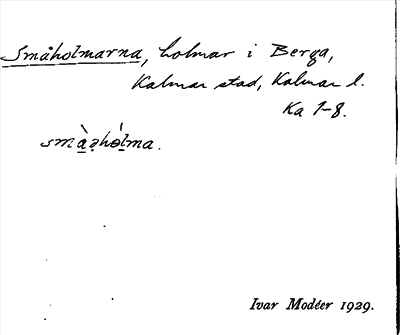 Småholmarna, holmar i Berga,
Kalmar stad, Kalmar l.
Ka 1-8.
smàəhólma.
Ivar Modéer 1929.